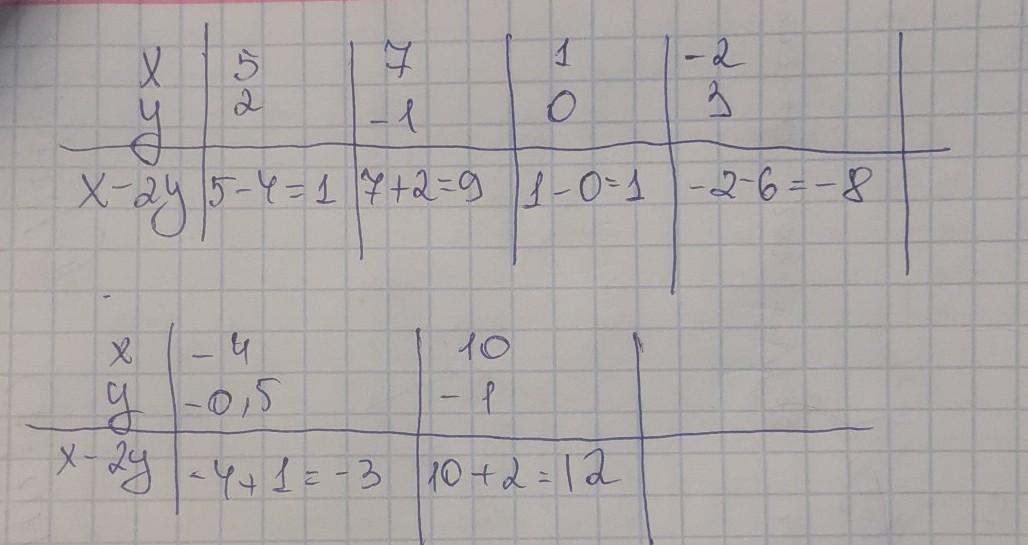 x 5 7 1 -2
y 2 -1 0 3
x-2y 5-4=1 7+2=9 1-0=1 -2-6=-8
x -4 10
y -0,5 -1
x-2y -4+1=-3 10+2=12